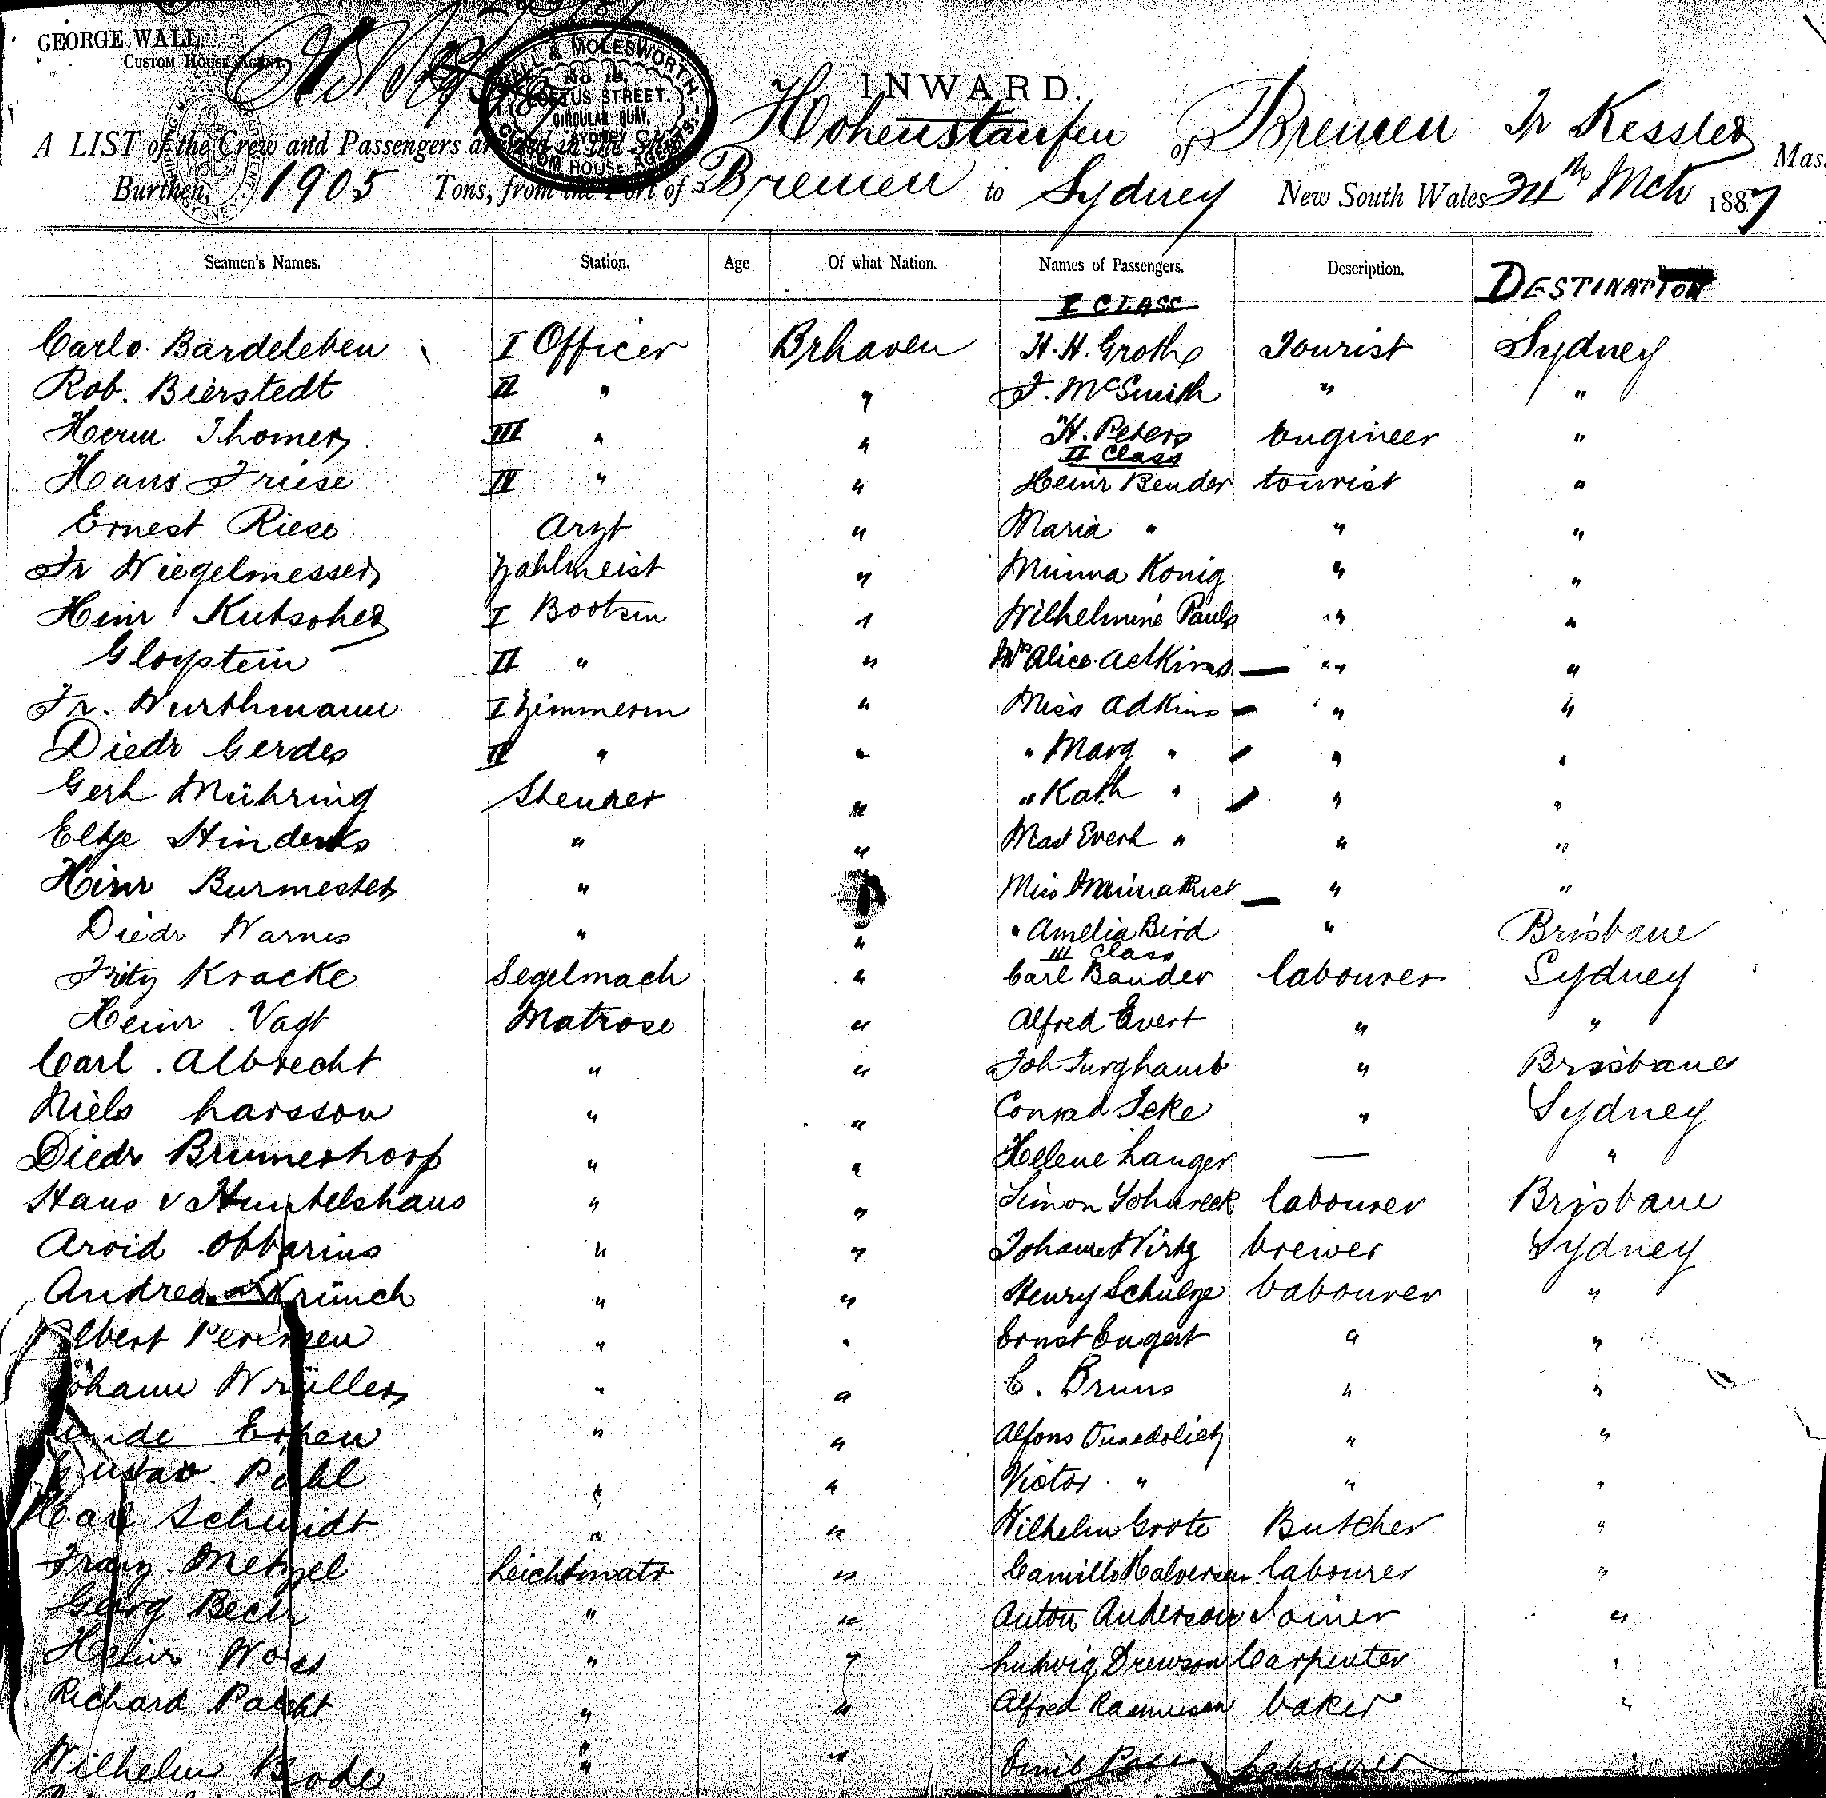 GEORGE WALL
CUSTOM HOUSE AGENT
& MOLESWORTH
LOFTUS STREET.
CIRCULAR QUAY,
SYDNEY
CUSTOM HOUSE AGENTS.
INWARD.
A LIST of the Crew and Passengers arrived in the Ship Hohenstaufen of Bremen Fr Kessler Mas
Burthen, 1905 Tons, from the Port of Bremen to Sydney New South Wales 24th Mch 1887
Seamen's Names. Station. Age Of what Nation. Names of Passengers. Description. DESTINATION
I CLASS
Carlo Bardeleben I Officer Brhaven H. H. Groth Tourist Sydney
Rob. Bierstedt II " " J. McSmith " "
Herm Thomer III " " H. Peters Engineer "
II Class
Hans Friese IV " " Heinr Bender tourist "
Ernest Riese Arzt " Maria " " "
Fr Wiegelmesser Zahlmeist " Minna Konig " "
Heinr Kutscher I Bootsm " Wilhelmine Pauls " "
Gloystein II " " Mrs Alice Adkins — " "
Fr. Wurthmann I Zimmerm " Miss Adkins - " "
Diedr Gerdes II " " " Marg " " "
Gerh Mühring Steurer " " Kath " " "
Eltje Hinderks " " Mad Everh " " "
Hinr Burmester " Miss Minna — " "
Diedr Warns " " " Amelia Bird " Brisbane
III Class
Fritz Kracke Segelmach " Carl Bauder labourer Sydney
Heinr Vagt Matrose " Alfred Evert " "
Carl Albrecht " " Joh " Brisbane
Niels Larsson " " Conrad Ieke " Sydney
Diedr Brumerhorp " " Helene Langer — "
Hans v Huntelshaus " " Simon labourer Brisbane
Arvid Obbarius " " Johannes Wirtz brewer Sydney
Andreas Krünch " " Henry Schulze labourer "
Albert Petersen " " Ernst Engert " "
Johann Wrüller " " C. Bruns " "
" " Alfons " "
Gustav Pahl " " Victor " " "
Carl Schmidt " " Wilhelm Grote Butcher "
Franz Metzel Leichtmatr " Camillo Halversen labourer "
Georg Bech " " Anton Anderson Joiner "
Heinr Woss " " Ludwig Drewson Carpenter "
Richard Pacht " " Alfred Rasmussen baker "
Wilhelm Bode " " Emil labourer